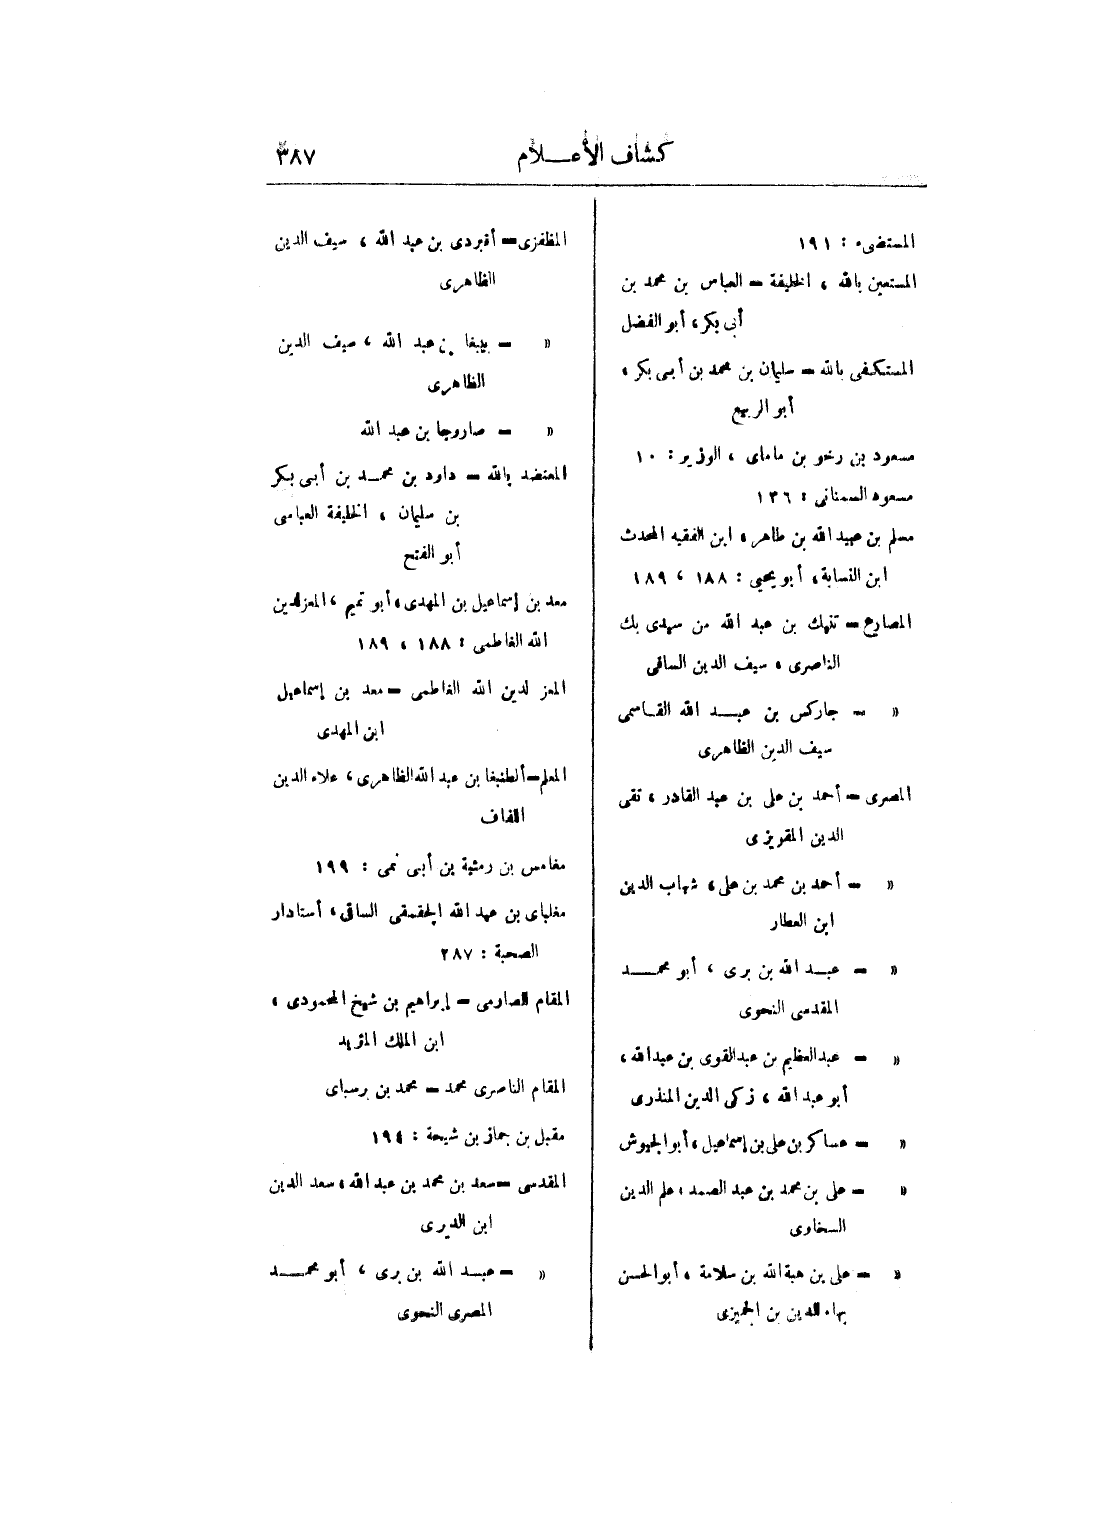 كشاف الأعـــلام
٣٨٧
المستضىء : ١٩١
المستعين بالله ، الخليفة — العباس بن محمد بن
أبى بكر، أبو الفضل
المستكفى بالله — سليمان بن محمد بن أبى بكر ،
أبو الربيع
مسعود بن رخو بن ماماى ، الوزير : ١٠
مسعود السمنانى : ١٣٦
مسلم بن عبيد الله بن طاهر ، ابن الفقيه المحدث
ابن النسابة، أبو يحيى : ١٨٨ ، ١٨٩
المصارع — تنبك بن عبد الله من سيدى بك
الناصرى ، سيف الدين الساقى
» — جاركس بن عبــد الله القــاسمى
سيف الدين الظاهرى
المصرى — أحمد بن على بن عبد القادر ، تقى
الدين المقريزى
» — أحمد بن محمد بن على، شهاب الدين
ابن العطار
» — عبــد الله بن برى ، أبو محمــــد
المقدسى النحوى
» — عبدالعظيم بن عبدالقوى بن عبدالله ،
أبو عبد الله ، زكى الدين المنذرى
» — عساكر بن على بن إسماعيل ، أبو الجيوش
» — على بن محمد بن عبد الصمد ، علم الدين
السخاوى
» — على بن هبة الله بن سلامة ، أبو الحسن
بهاء الدين بن الجميزى
المظفرى — أقبردى بن عبد الله ، سيف الدين
الظاهرى
» — بيبغا بن عبد الله ، سيف الدين
الظاهرى
» — صاروجا بن عبد الله
المعتضد بالله — داود بن محمــد بن أبى بكر
بن سليمان ، الخليفة العباسى
أبو الفتح
معد بن إسماعيل بن المهدى، أبو تميم ، المعز لدين
الله الفاطمى : ١٨٨ ، ١٨٩
المعز لدين الله الفاطمى — معد بن إسماعيل
ابن المهدى
المعلم — ألطنبغا بن عبد الله الظاهرى ، علاء الدين
اللفاف
مغامس بن رمثية بن أبى نمى : ١٩٩
مغلباى بن عبد الله الجقمقى الساقى ، أستادار
الصحبة : ٢٨٧
المقام الصارمى — إبراهيم بن شيخ المحمودى ،
ابن الملك المؤيد
المقام الناصرى محمد — محمد بن برسباى
مقبل بن جماز بن شيحة : ١٩٤
المقدسى — سعد بن محمد بن عبد الله ، سعد الدين
ابن الديرى
» — عبــد الله بن برى ، أبو محمــــد
المصرى النحوى